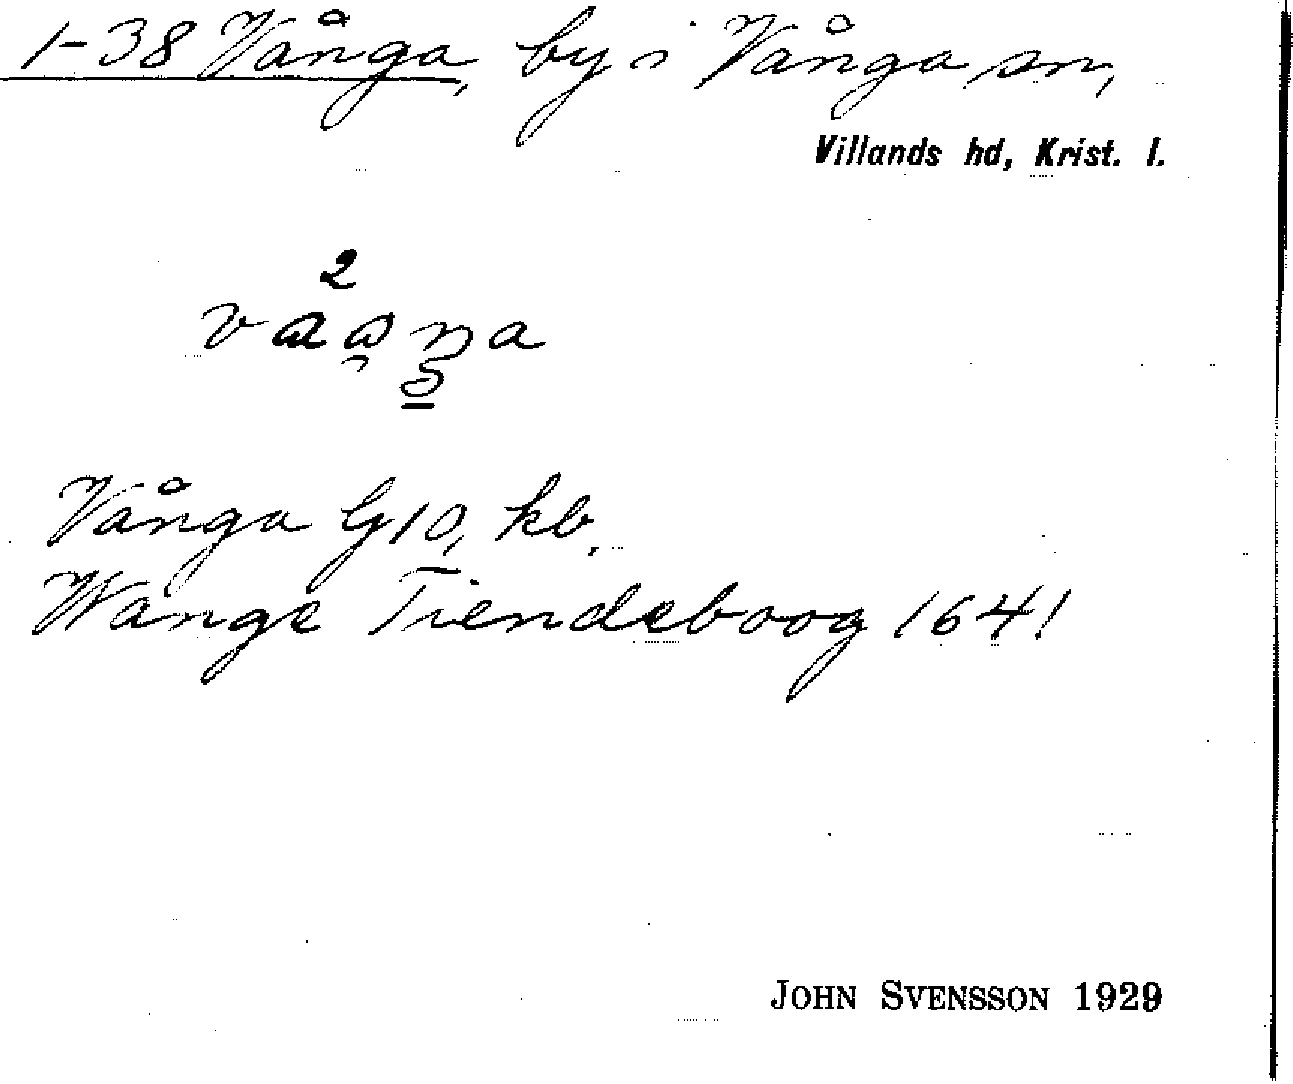 1-38 Vånga, by i Vånga sn,
Villands hd, Krist. l.
2
Vånga G10, kb.
Wange Tiendeboog 1641
JOHN SVENSSON 1929